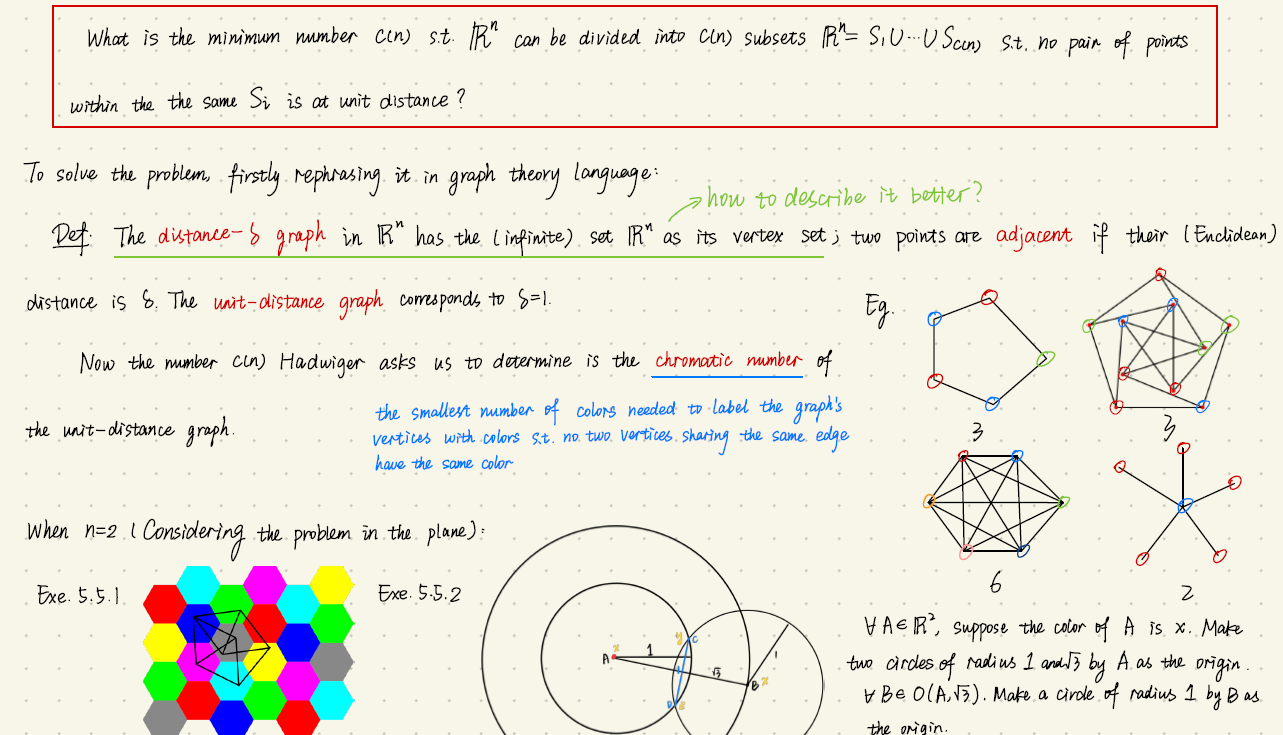 What is the minimum number c(n) s.t. ℝⁿ can be divided into c(n) subsets ℝⁿ = S₁∪⋯∪S_c(n) s.t. no pair of points
within the the same Sᵢ is at unit distance?
To solve the problem, firstly rephrasing it in graph theory language:
→ how to describe it better?
Def: The distance-δ graph in ℝⁿ has the (infinite) set ℝⁿ as its vertex set; two points are adjacent if their (Enclidean)
distance is δ. The unit-distance graph corresponds to δ=1.
Eg.
Now the number c(n) Hadwiger asks us to determine is the chromatic number of
the smallest number of colors needed to label the graph's
vertices with colors s.t. no two vertices sharing the same edge
have the same color
the unit-distance graph.
3
3
6
2
When n=2 (Considering the problem in the plane):
Exe. 5.5.1
Exe. 5.5.2
A
x
1
y
C
√3
1
B
x
D
z
1
∀A∈ℝ², suppose the color of A is x. Make
two circles of radius 1 and √3 by A as the origin.
∀B∈O(A,√3). Make a circle of radius 1 by B as
the origin.